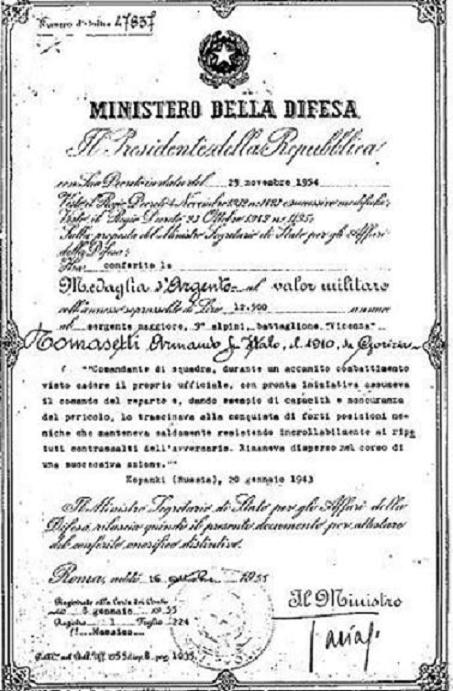 Numero d'ordine 27837
MINISTERO DELLA DIFESA
Il Presidente della Repubblica
con Suo Decreto in data del 25 novembre 1954
Visto il Regio Decreto 4 Novembre 1932 n: 1423 e successive modifiche;
Visto il Regio Decreto 23 Ottobre 1942 n: 1195;
Sulla proposta del Ministro Segretario di Stato per gli Affari
della Difesa;
Ha conferito la
Medaglia d'Argento al valor militare
coll'annesso soprassoldo di Lire 12.500 annue
al sergente maggiore, 9° alpini, battaglione "Vicenza"
Tomasetti Armando fu Italo, cl. 1910, da Gorizia
"Comandante di squadra, durante un accanito combattimento
visto cadere il proprio ufficiale, con pronta iniziativa assumeva
il comando del reparto e, dando esempio di capacità e noncuranza
del pericolo, lo trascinava alla conquista di forti posizioni ne-
miche che manteneva saldamente resistendo incrollabilmente ai ripe
tuti contrassalti dell'avversario. Rimaneva disperso nel corso di
una successiva azione."
Kopanki (Russia), 20 gennaio 1943
Il Ministro Segretario di Stato per gli Affari della
Difesa, rilascia quindi il presente documento per attestare
del conferito onorifico distintivo.
Roma, addì 16 1955
Registrato alla Corte dei Conti
addì 5 gennaio 1955
Registro 1 Foglio 224
f! Messina
Il Ministro